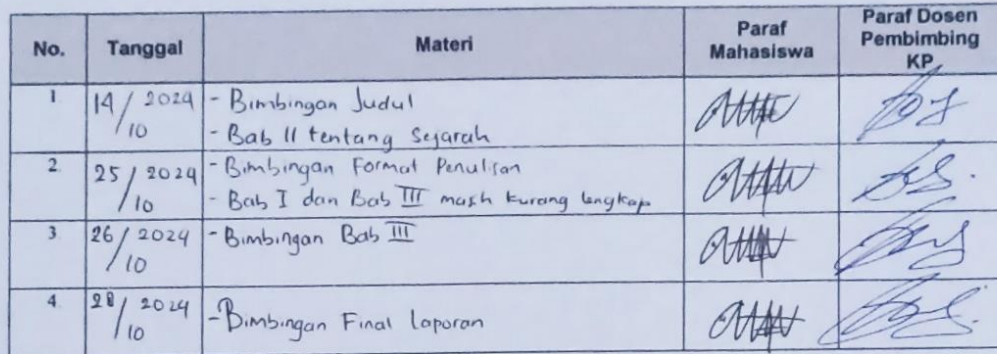 No. Tanggal Materi Paraf Mahasiswa Paraf Dosen Pembimbing KP
1. 14/10 2024 - Bimbingan Judul
- Bab II tentang Sejarah
2. 25/10 2024 - Bimbingan Format Penulisan
- Bab I dan Bab III masih kurang lengkap
3. 26/10 2024 - Bimbingan Bab III
4. 28/10 2024 - Bimbingan Final Laporan